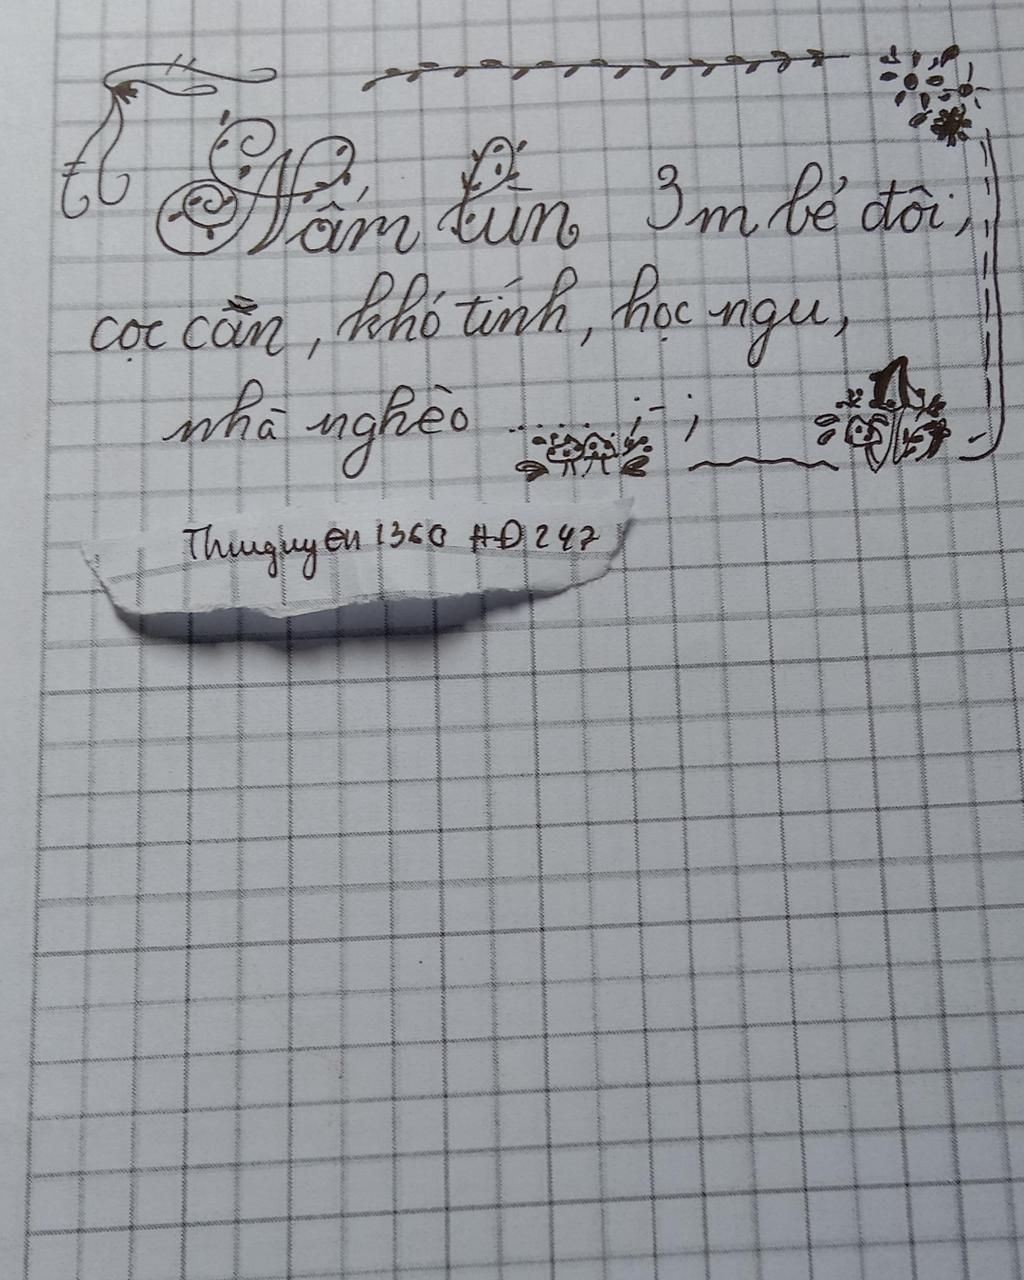 Nấm lùn 3m bẻ đôi,
cọc cằn, khó tính, học ngu,
nhà nghèo ......;-;
Thuuguyen 1360 HĐ 247